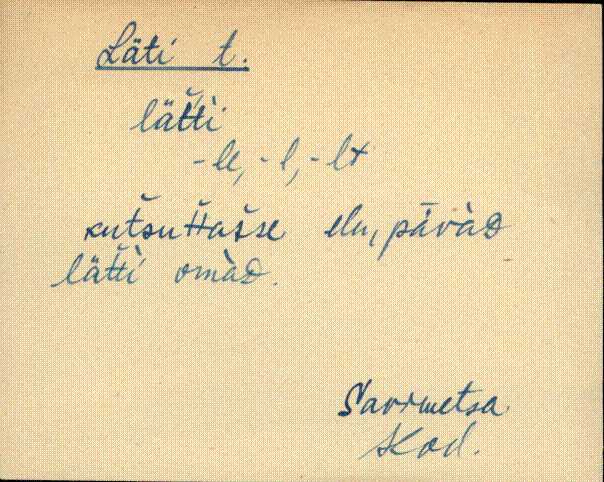 Läti t.
lät̆t̆ì
-le, -l, -lt
kut̆sut̆t̆as̆se elu, pävàD
lät̆t̆ì omàD.
Savimetsa
Kod.